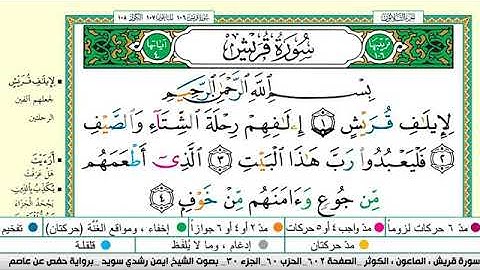 سورة قريش ١٠٦ الماعون ١٠٧ الكوثر ١٠٨
الجزء الثلاثون
ترتيبها ١٠٦
سُورَةُ قُرَيْشٍ
آياتها ٤
بِسْمِ اللَّهِ الرَّحْمَٰنِ الرَّحِيمِ
لِإِيلَٰفِ قُرَيْشٍ ١ إِۦلَٰفِهِمْ رِحْلَةَ الشِّتَآءِ وَالصَّيْفِ
٢ فَلْيَعْبُدُوا۟ رَبَّ هَٰذَا الْبَيْتِ ٣ الَّذِىٓ أَطْعَمَهُم
مِّن جُوعٍ وَءَامَنَهُم مِّنْ خَوْفٍ ٤
لِإِيلَٰفِ قُرَيْشٍ
جعلهم آلفين
الرحلتين
أَرَءَيْتَ
هل عرفت
يُكَذِّبُ بِالدِّينِ
يجحد الجزاء
مدّ ٦ حركات لزوماً مدّ واجب ٤ أو ٥ حركات مدّ ٢ أو ٤ أو ٦ جوازاً إخفاء، ومواقع الغُنَّة (حركتان) تفخيم
مدّ حركتان إدغام، وما لا يُلفَظ قلقلة
سورة قريش ، الماعون ، الكوثر . الصفحة ٦٠٢ الحزب ٦٠ الجزء ٣٠ . بصوت الشيخ أيمن رشدي سويد . برواية حفص عن عاصم